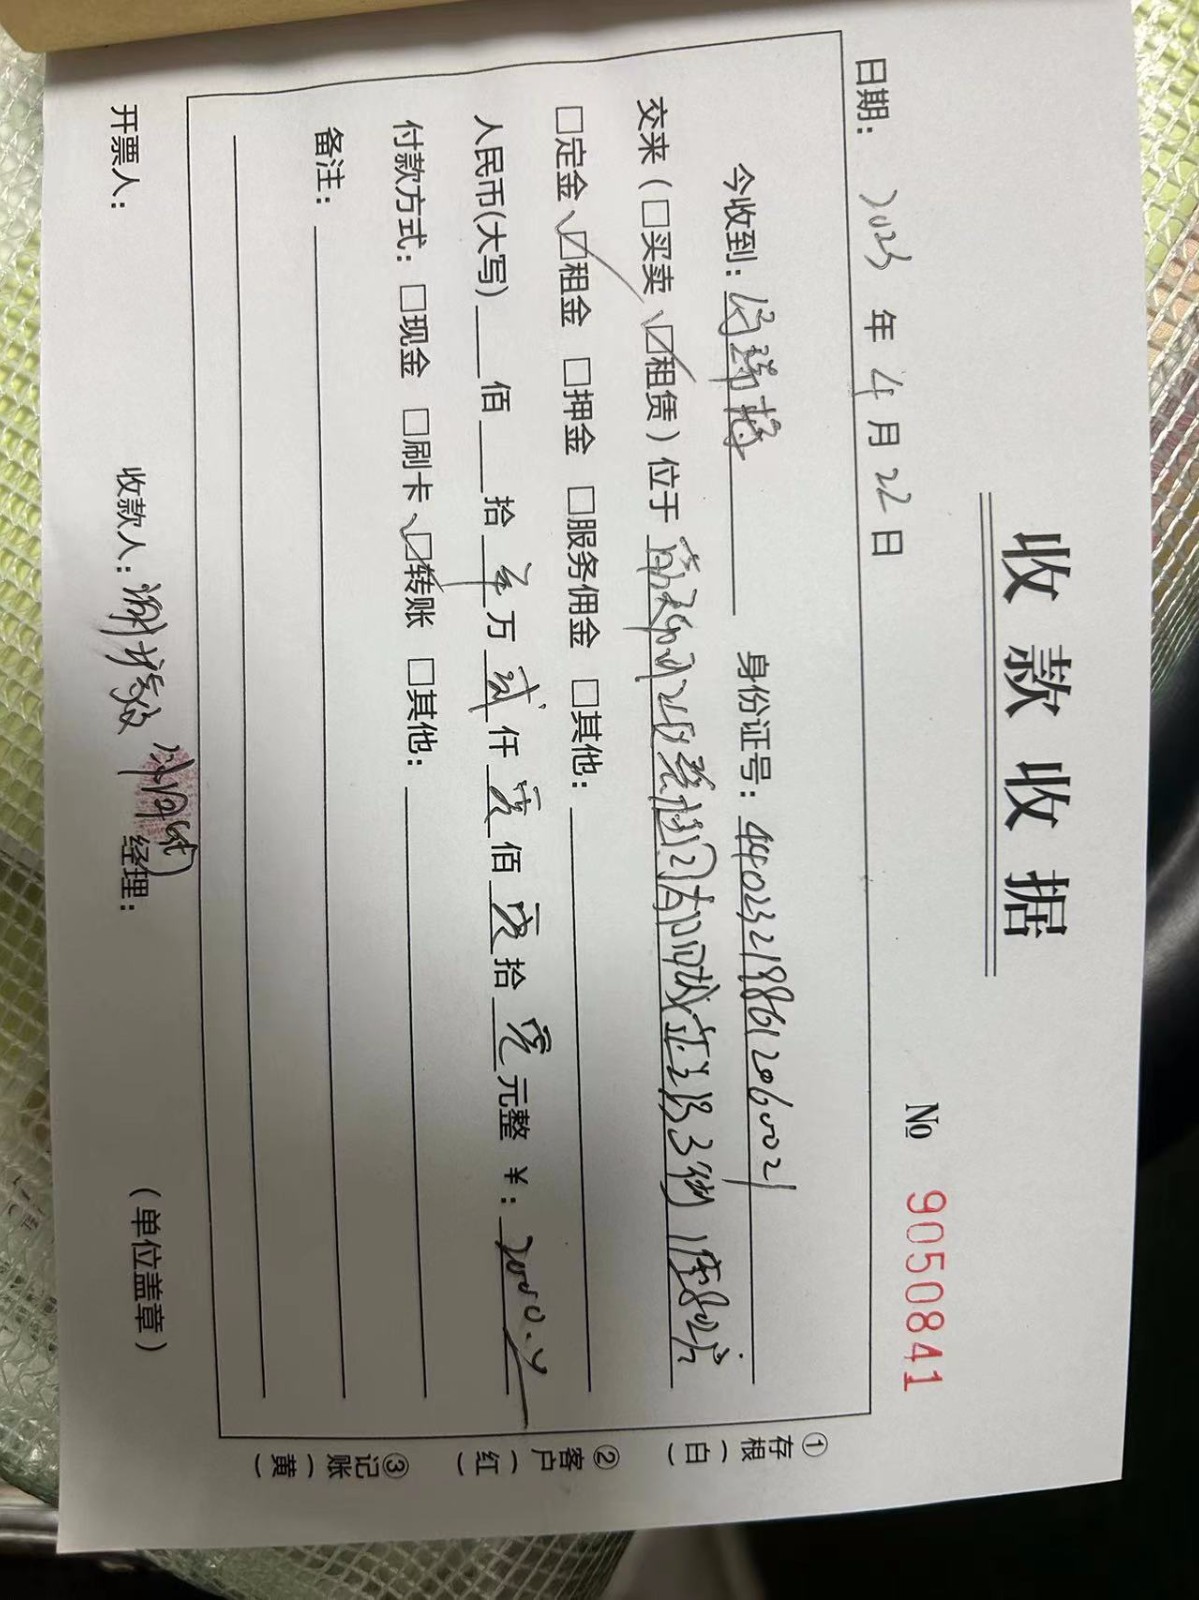 收款收据
№ 9050841
日期: 2023 年 4 月 22 日
今收到: 身份证号: 440232198612060021
交来(□买卖 ☑租赁)位于
□定金 ☑租金 □押金 □服务佣金 □其他:
人民币(大写) 佰 拾 零 万 贰 仟 零 佰 零 拾 零 元整 ¥: 2000.
付款方式: □现金 □刷卡 ☑转账 □其他:
备注:
开票人: 收款人: 经理: (单位盖章)
①存根(白)
②客户(红)
③记账(黄)